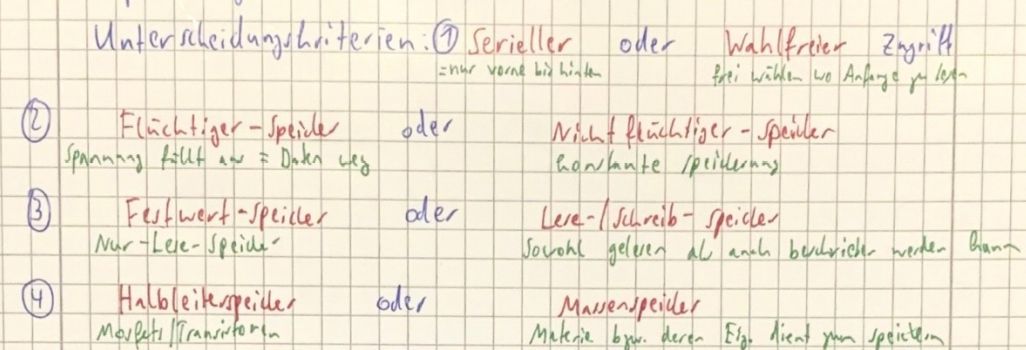 Unterscheidungskriterien: ① Serieller oder Wahlfreier Zugriff
=nur vorne bis hinten frei wählen wo Anfange zu lesen
② Flüchtiger-Speicher oder Nicht flüchtiger-Speicher
Spannung fällt aus = Daten weg konstante Speicherung
③ Festwert-Speicher oder Lese-/Schreib-Speicher
Nur-Lese-Speicher Sowohl gelesen als auch beschrieben werden kann
④ Halbleiterspeicher oder Massenspeicher
Mosfets/Transistoren Materie bzw. deren Eig. dient zum speichern